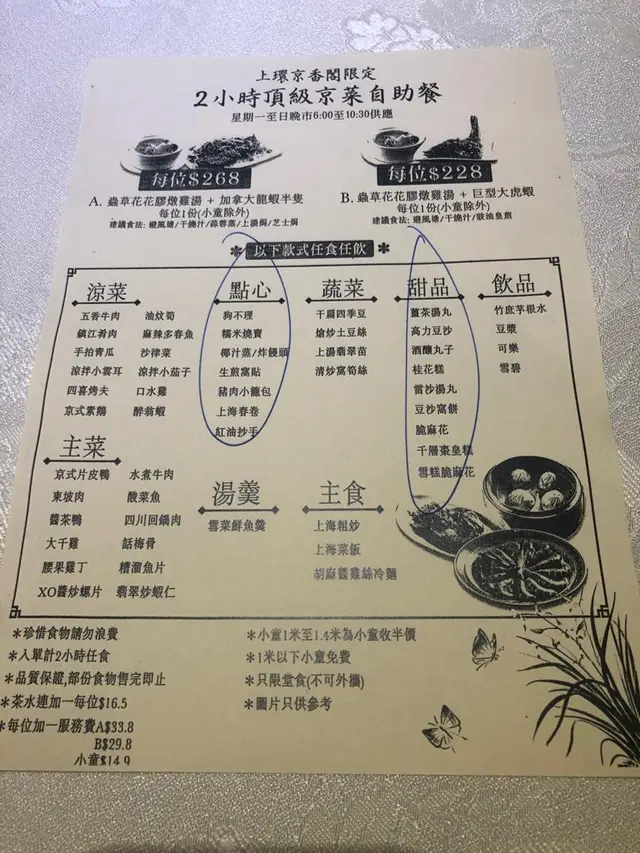 上環京香閣限定
2小時頂級京菜自助餐
星期一至日晚市6:00至10:30供應
每位$268
每位$228
A. 蟲草花花膠燉雞湯 + 加拿大龍蝦半隻
每位1份(小童除外)
建議食法: 避風塘/干燒汁/蒜蓉蒸/上湯焗/芝士焗
B. 蟲草花花膠燉雞湯 + 巨型大虎蝦
每位1份(小童除外)
建議食法: 避風塘/干燒汁/豉油皇煎
*以下款式任食任飲*
涼菜
五香牛肉 油炆筍
鎮江肴肉 麻辣多春魚
手拍青瓜 沙律菜
涼拌小雲耳 涼拌小茄子
四喜烤夫 口水雞
京式素鵝 醉翁蝦
點心
狗不理
糯米燒賣
椰汁蒸/炸饅頭
生煎窩貼
豬肉小籠包
上海春卷
紅油抄手
蔬菜
干扁四季豆
熗炒土豆絲
上湯翡翠苗
清炒窩筍絲
甜品
薑茶湯丸
高力豆沙
酒釀丸子
桂花糕
雷沙湯丸
豆沙窩餅
脆麻花
千層棗皇糕
雪糕脆麻花
飲品
竹庶茅根水
豆漿
可樂
雪碧
主菜
京式片皮鴨 水煮牛肉
東坡肉 酸菜魚
醬茶鴨 四川回鍋肉
大千雞 話梅骨
腰果雞丁 糟溜魚片
XO醬炒螺片 翡翠炒蝦仁
湯羹
雪菜鮮魚羹
主食
上海粗炒
上海菜飯
胡麻醬雞絲冷麵
*珍惜食物請勿浪費
*入單計2小時任食
*品質保證,部份食物售完即止
*茶水連加一每位$16.5
*每位加一服務費A$33.8
B$29.8
小童$14.9
*小童1米至1.4米為小童收半價
*1米以下小童免費
*只限堂食(不可外攜)
*圖片只供參考